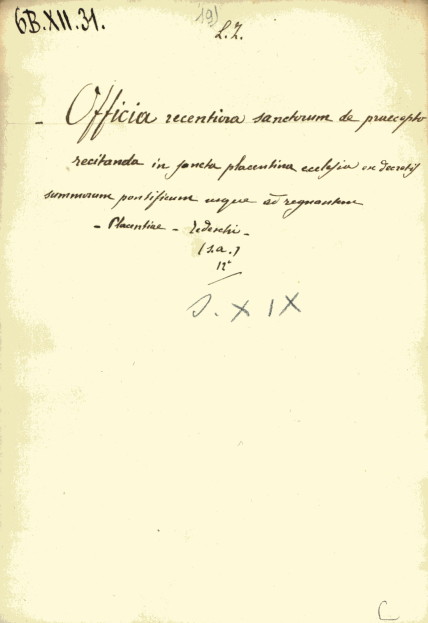 6B.XII.31.
191
L.Z.
- Officia recentiora sanctorum de praecepto
recitanda in sancta placentina ecclesia ex decretis
summorum pontificum usque ad regnantem
- Placentiae - Tedeschi -
(s.a.)
12°
S. XIX
C